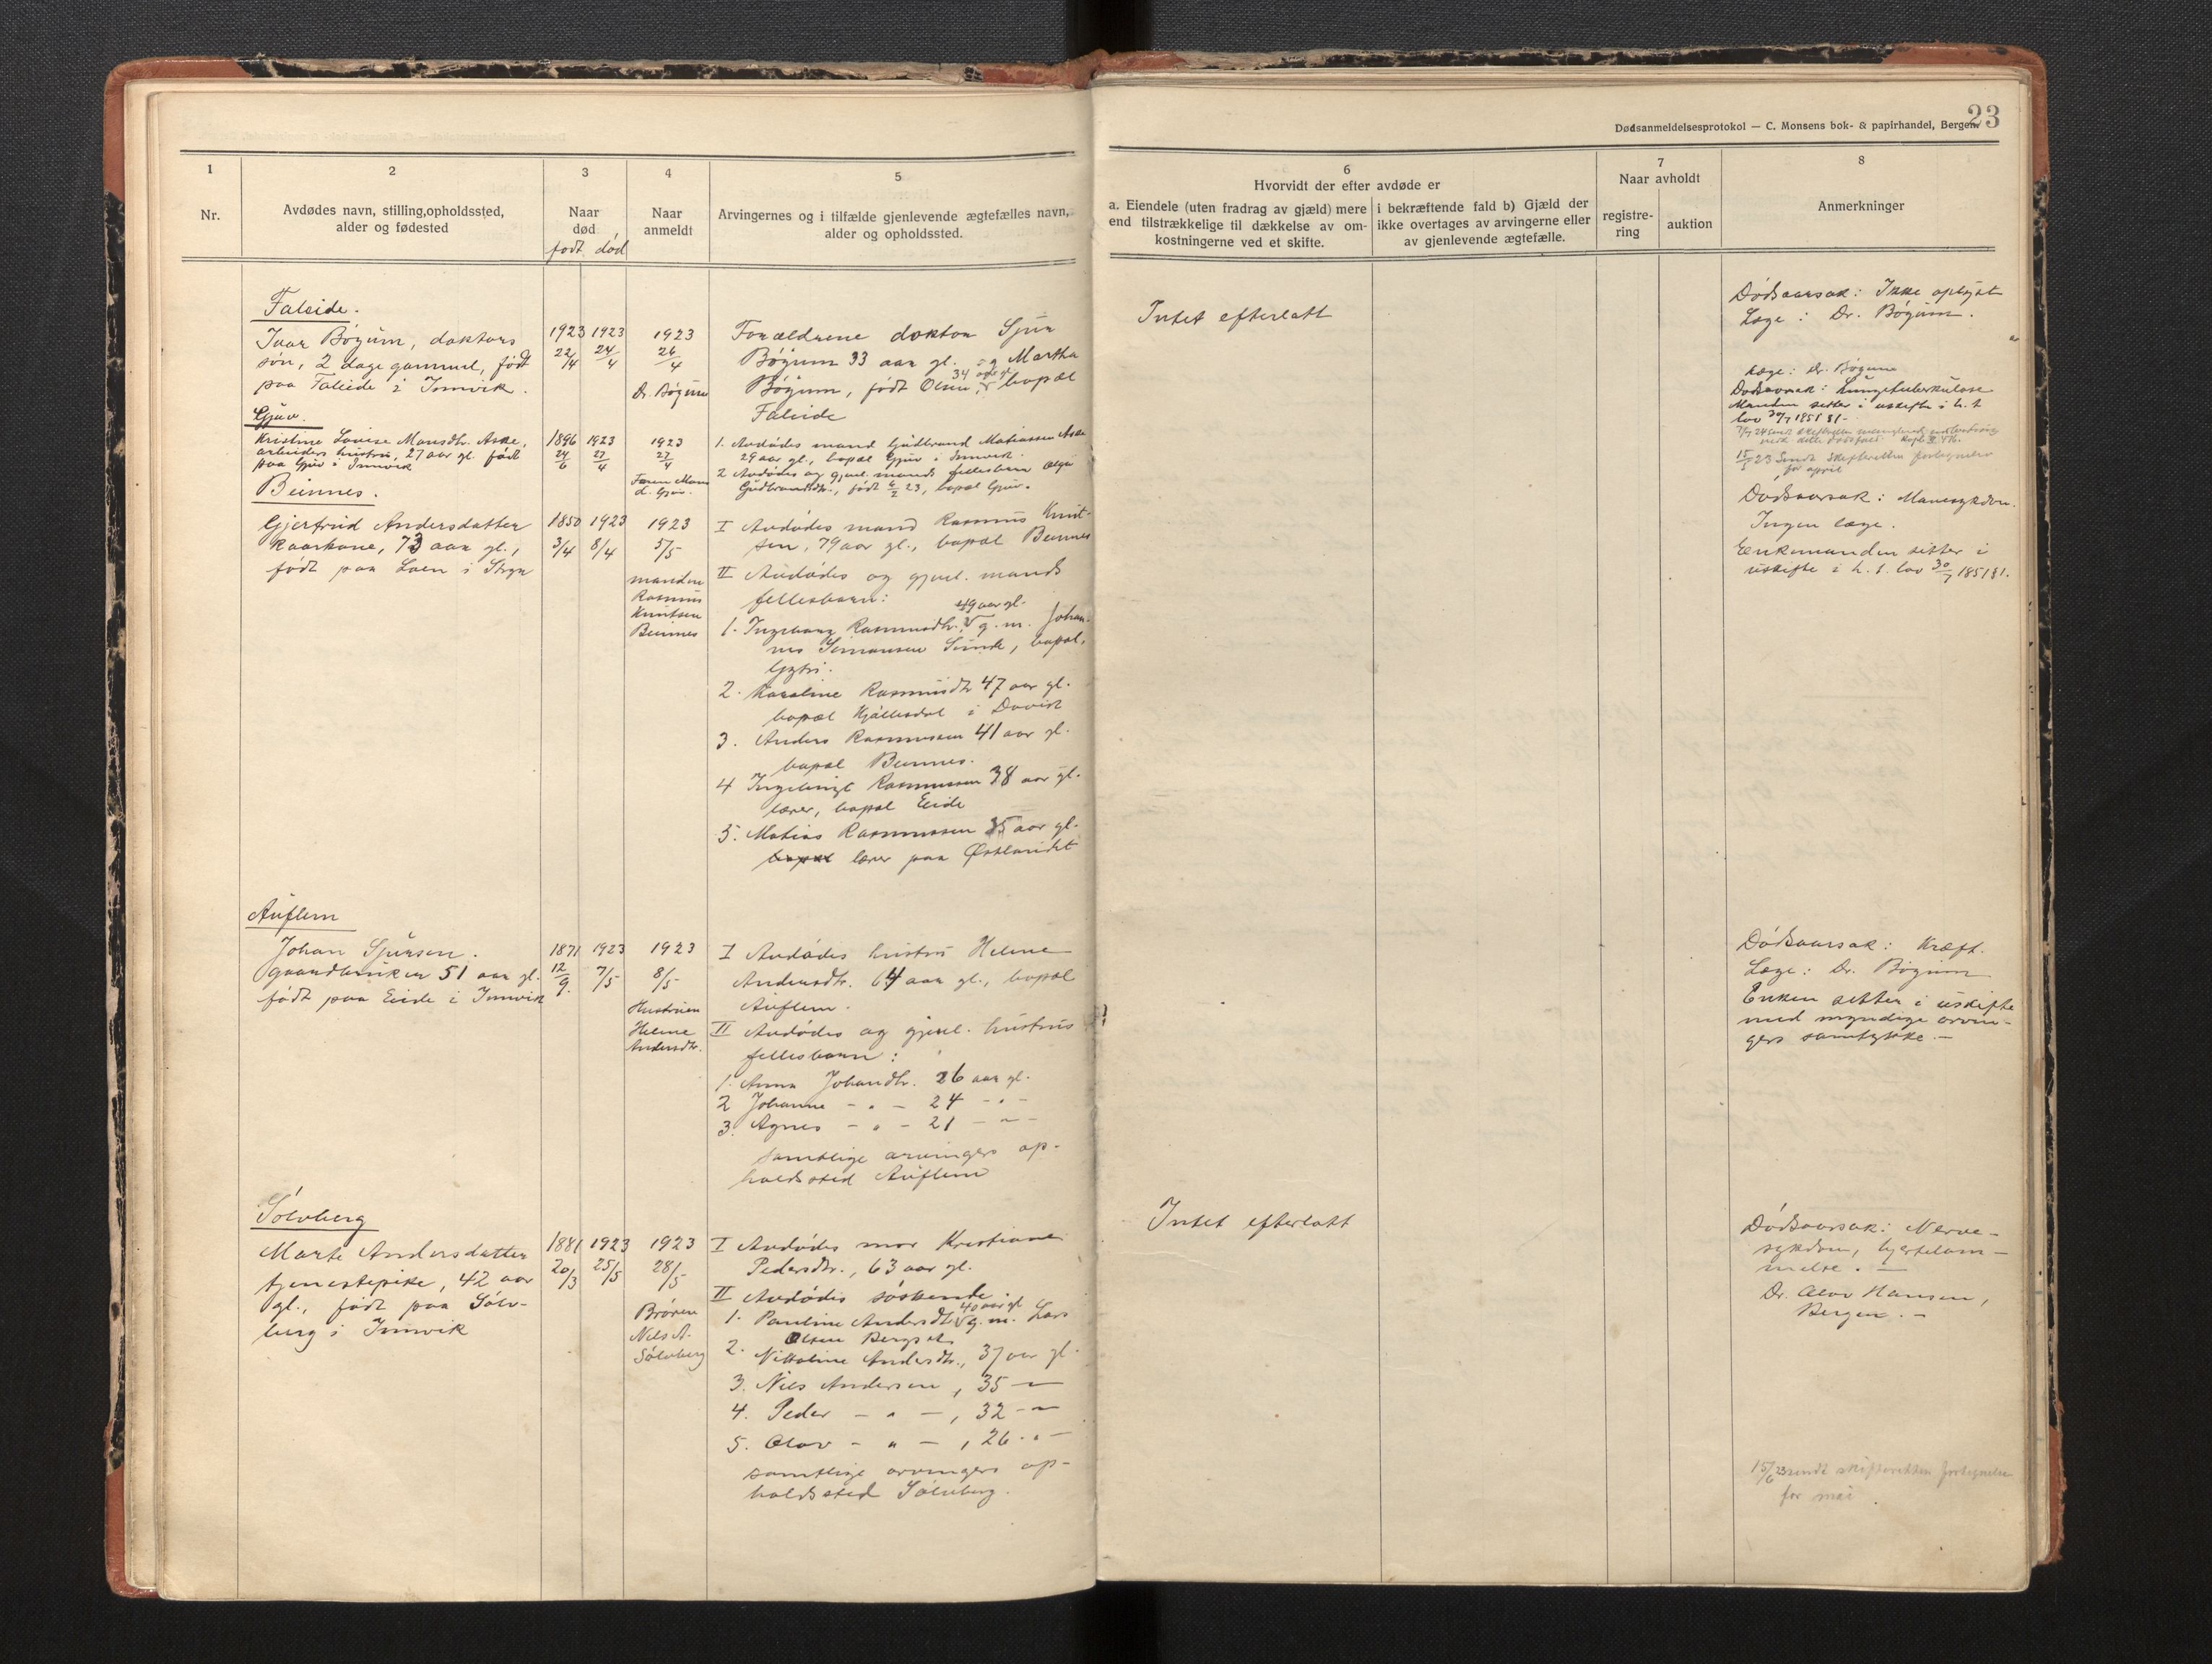 Dødsanmeldelsesprotokol — C. Monsens bok- & papirhandel, Bergen.
23
1
2
3
4
5
Nr.
Avdødes navn, stilling, opholdssted,
alder og fødested
Naar
død
født død
Naar
anmeldt
Arvingernes og i tilfælde gjenlevende ægtefælles navn,
alder og opholdssted.
6
Hvorvidt der efter avdøde er
a. Eiendele (uten fradrag av gjæld) mere
end tilstrækkelige til dækkelse av om-
kostningerne ved et skifte.
i bekræftende fald b) Gjæld der
ikke overtages av arvingerne eller
av gjenlevende ægtefælle.
7
Naar avholdt
registre-
ring
auktion
8
Anmerkninger
Faleide.
Ivar Bøgum, doktors
søn, 2 dage gammel, født
paa Faleide i Innvik.
1923 1923
22/4 24/4
1923
26/4
Dr. Bøgum
Forældrene doktor Sjur
Bøgum 33 aar gl. og Martha
Bøgum, født Olsen, 34 aar gl. bopæl
Faleide
Intet efterlatt
Dødsaarsak: Ikke oplyst
Læge: Dr. Bøgum.
Gjuv.
Kristine Lovise Monsdtr. Aske,
arbeiders hustru, 27 aar gl. født
paa Gjuv i Innvik
1896 1923
24/6 27/4
1923
27/4
Faren Mons
Gjuv.
1. Avdødes mand Gudbrand Matiassen Aske
29 aar gl., bopæl Gjuv i Innvik.
2 Avdødes og gjenl. mands fellesbarn
Gudbrandsdtr., født 6/2 23, bopæl Gjuv.
Læge: Dr. Bøgum
Dødsaarsak: Lungetuberkulose
Manden sitter i uskifte i h. t.
lov 30/7 1851 §1-
15/5 23 Sendt Skifteretten fortegnelse
for april
Beinnes.
Gjertrud Andersdatter
Kaarkone, 73 aar gl.,
født paa Loen i Stryn
1850 1923
3/4 8/4
1923
5/5
manden
Rasmus
Knutsen
Beinnes
I Avdødes mand Rasmus Knut-
sen, 79 aar gl., bopæl Beinnes
II Avdødes og gjenl. mands
fellesbarn:
1. Ingeborg Rasmusdtr. 49 aar gl. g. m. Johan-
nes Simonsen Sunde, bopæl,
2. Karoline Rasmusdtr 47 aar gl.
bopæl Hjällesdal i Davik
3. Anders Rasmussen 41 aar gl.
bopæl Beinnes.
4 Ingebrigt Rasmussen 38 aar gl.
lærer, bopæl Eide
5. Matias Rasmussen 35 aar gl.
bopæl lærer paa Østlandet
Dødsaarsak: Mavesykdom.
Ingen læge.
Enkemanden sitter i
uskifte i h. t. lov 30/7 1851 §1.
Auflem
Johan Sjursen.
gaardbruker 51 aar gl.
født paa Eide i Innvik
1871 1923
12/9 7/5
1923
8/5
Hustruen
Helene
Andersdtr.
I Avdødes hustru Helene
Andersdtr. 64 aar gl., bopæl
Auflem.
II Avdødes og gjenl. hustrus
fellesbarn:
1. Anna Johansdtr. 26 aar gl.
2 Johanne - " - 24 - " -
3. Agnes - " - 21 - " -
samtlige arvingers op-
holdssted Auflem
Dødsaarsak: Kræft.
Læge: Dr. Bøgum
Enken sitter i uskifte
med myndige arvin-
gers samtykke. -
Sølvberg
Marte Andersdatter
tjenestepike, 42 aar
gl., født paa Sølv-
berg i Innvik
1881 1923
20/3 25/5
1923
28/5
Broren
Nils A.
Sølvberg
I Avdødes mor Kristiane
Pedersdtr., 63 aar gl.
II Avdødes søskende.
1. Pauline Andersdtr. 40 aar gl g. m. Lars
Olsen Bergset
2. Nikoline Andersdtr., 37 aar gl.
3. Nils Andersen, 35 - " -
4. Peder - " -, 32 - " -
5. Olav - " -, 26 - " -
samtlige arvingers op-
holdssted Sølvberg.
Intet efterlatt
Dødsaarsak: Nerve-
sykdom, hjertelam-
melse. -
Dr. Olav Hansen,
Bergen. -
15/6 23 sendt skifteretten fortegnelse
for mai.